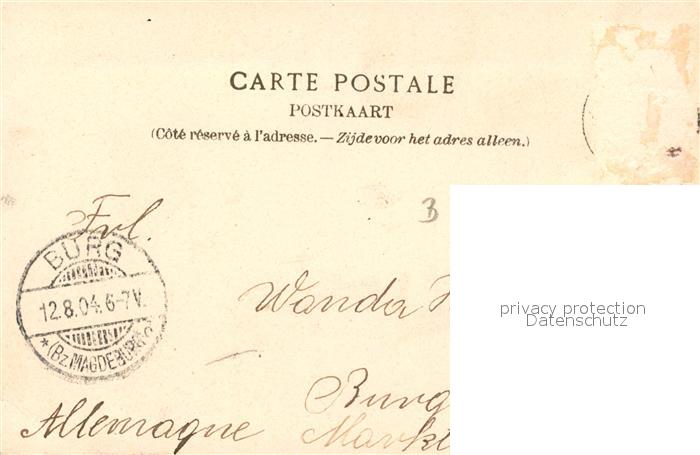 CARTE POSTALE
POSTKAART
(Côté réservé à l'adresse. — Zijde voor het adres alleen.)
B
Frl.
BURG
12.8.04. 6-7V.
* (Bz. MAGDEBURG)
Wanda
privacy protection
Datenschutz
Burg
Allemagne Markt